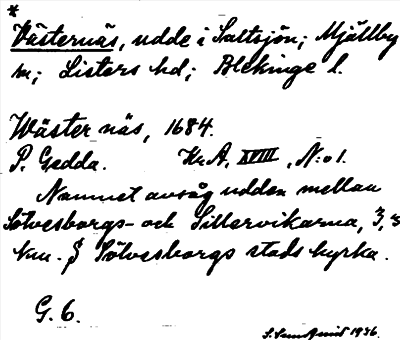 *
Västernäs, udde i Saltsjön; Mjällby
sn; Listers hd; Blekinge l.
Wäster näs, 1684.
P. Gedda. Kr.A. XVIII, N:o 1.
Namnet avsåg udden mellan
Sölvesborgs- och Sillervikarna, 3,3
km. § Sölvesborgs stads kyrka.
G. 6.
1936.